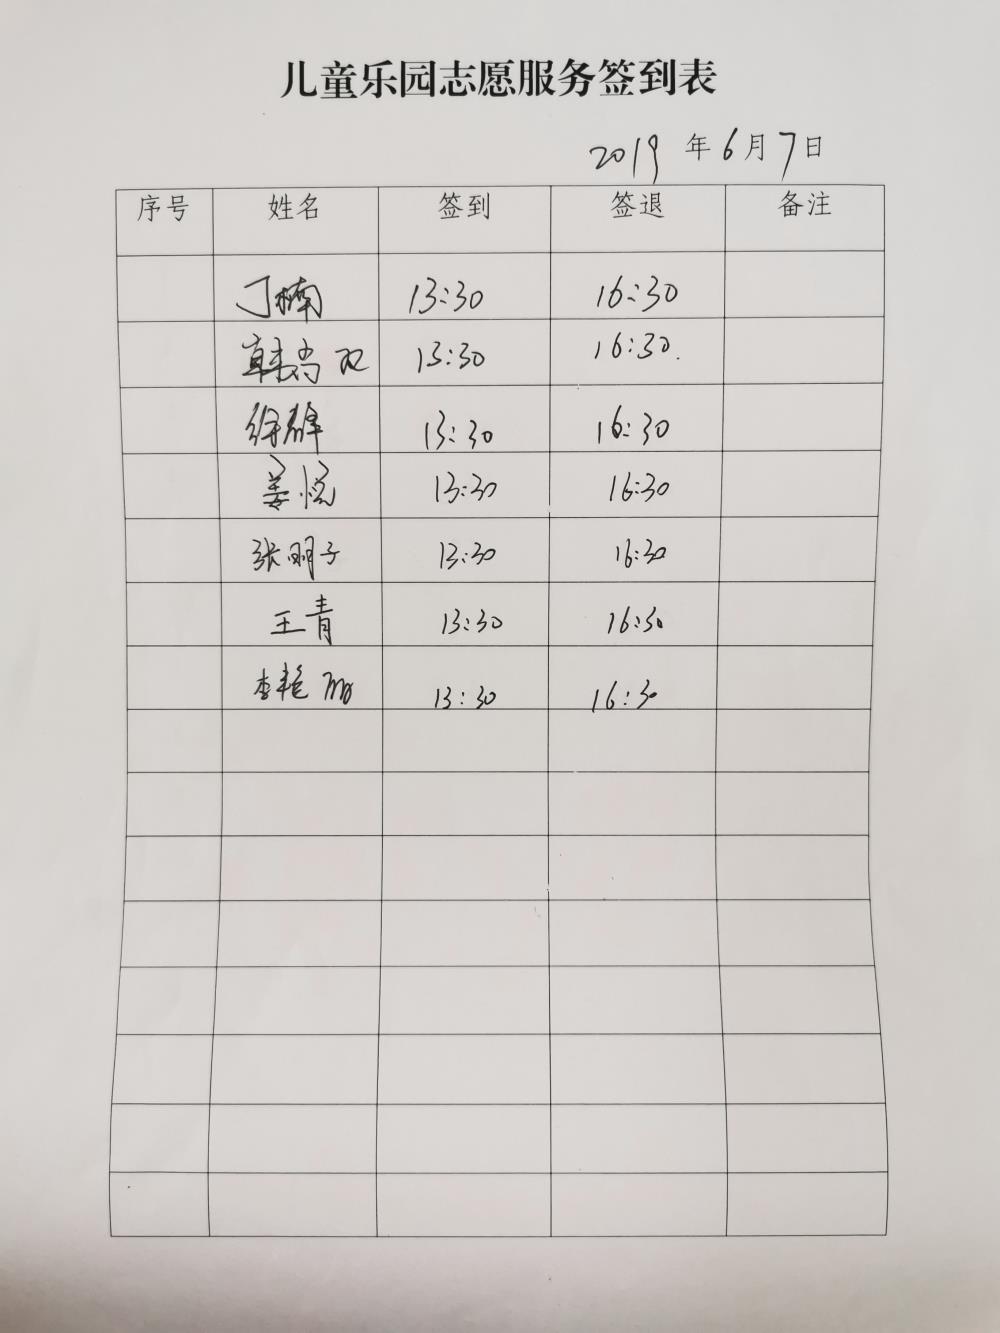 儿童乐园志愿服务签到表
2019 年 6 月 7 日
序号 姓名 签到 签退 备注
丁楠 13:30 16:30
韩尚双 13:30 16:30.
徐群 13:30 16:30
姜悦 13:30 16:30
张明子 13:30 16:30
王青 13:30 16:30
李艳丽 13:30 16:30